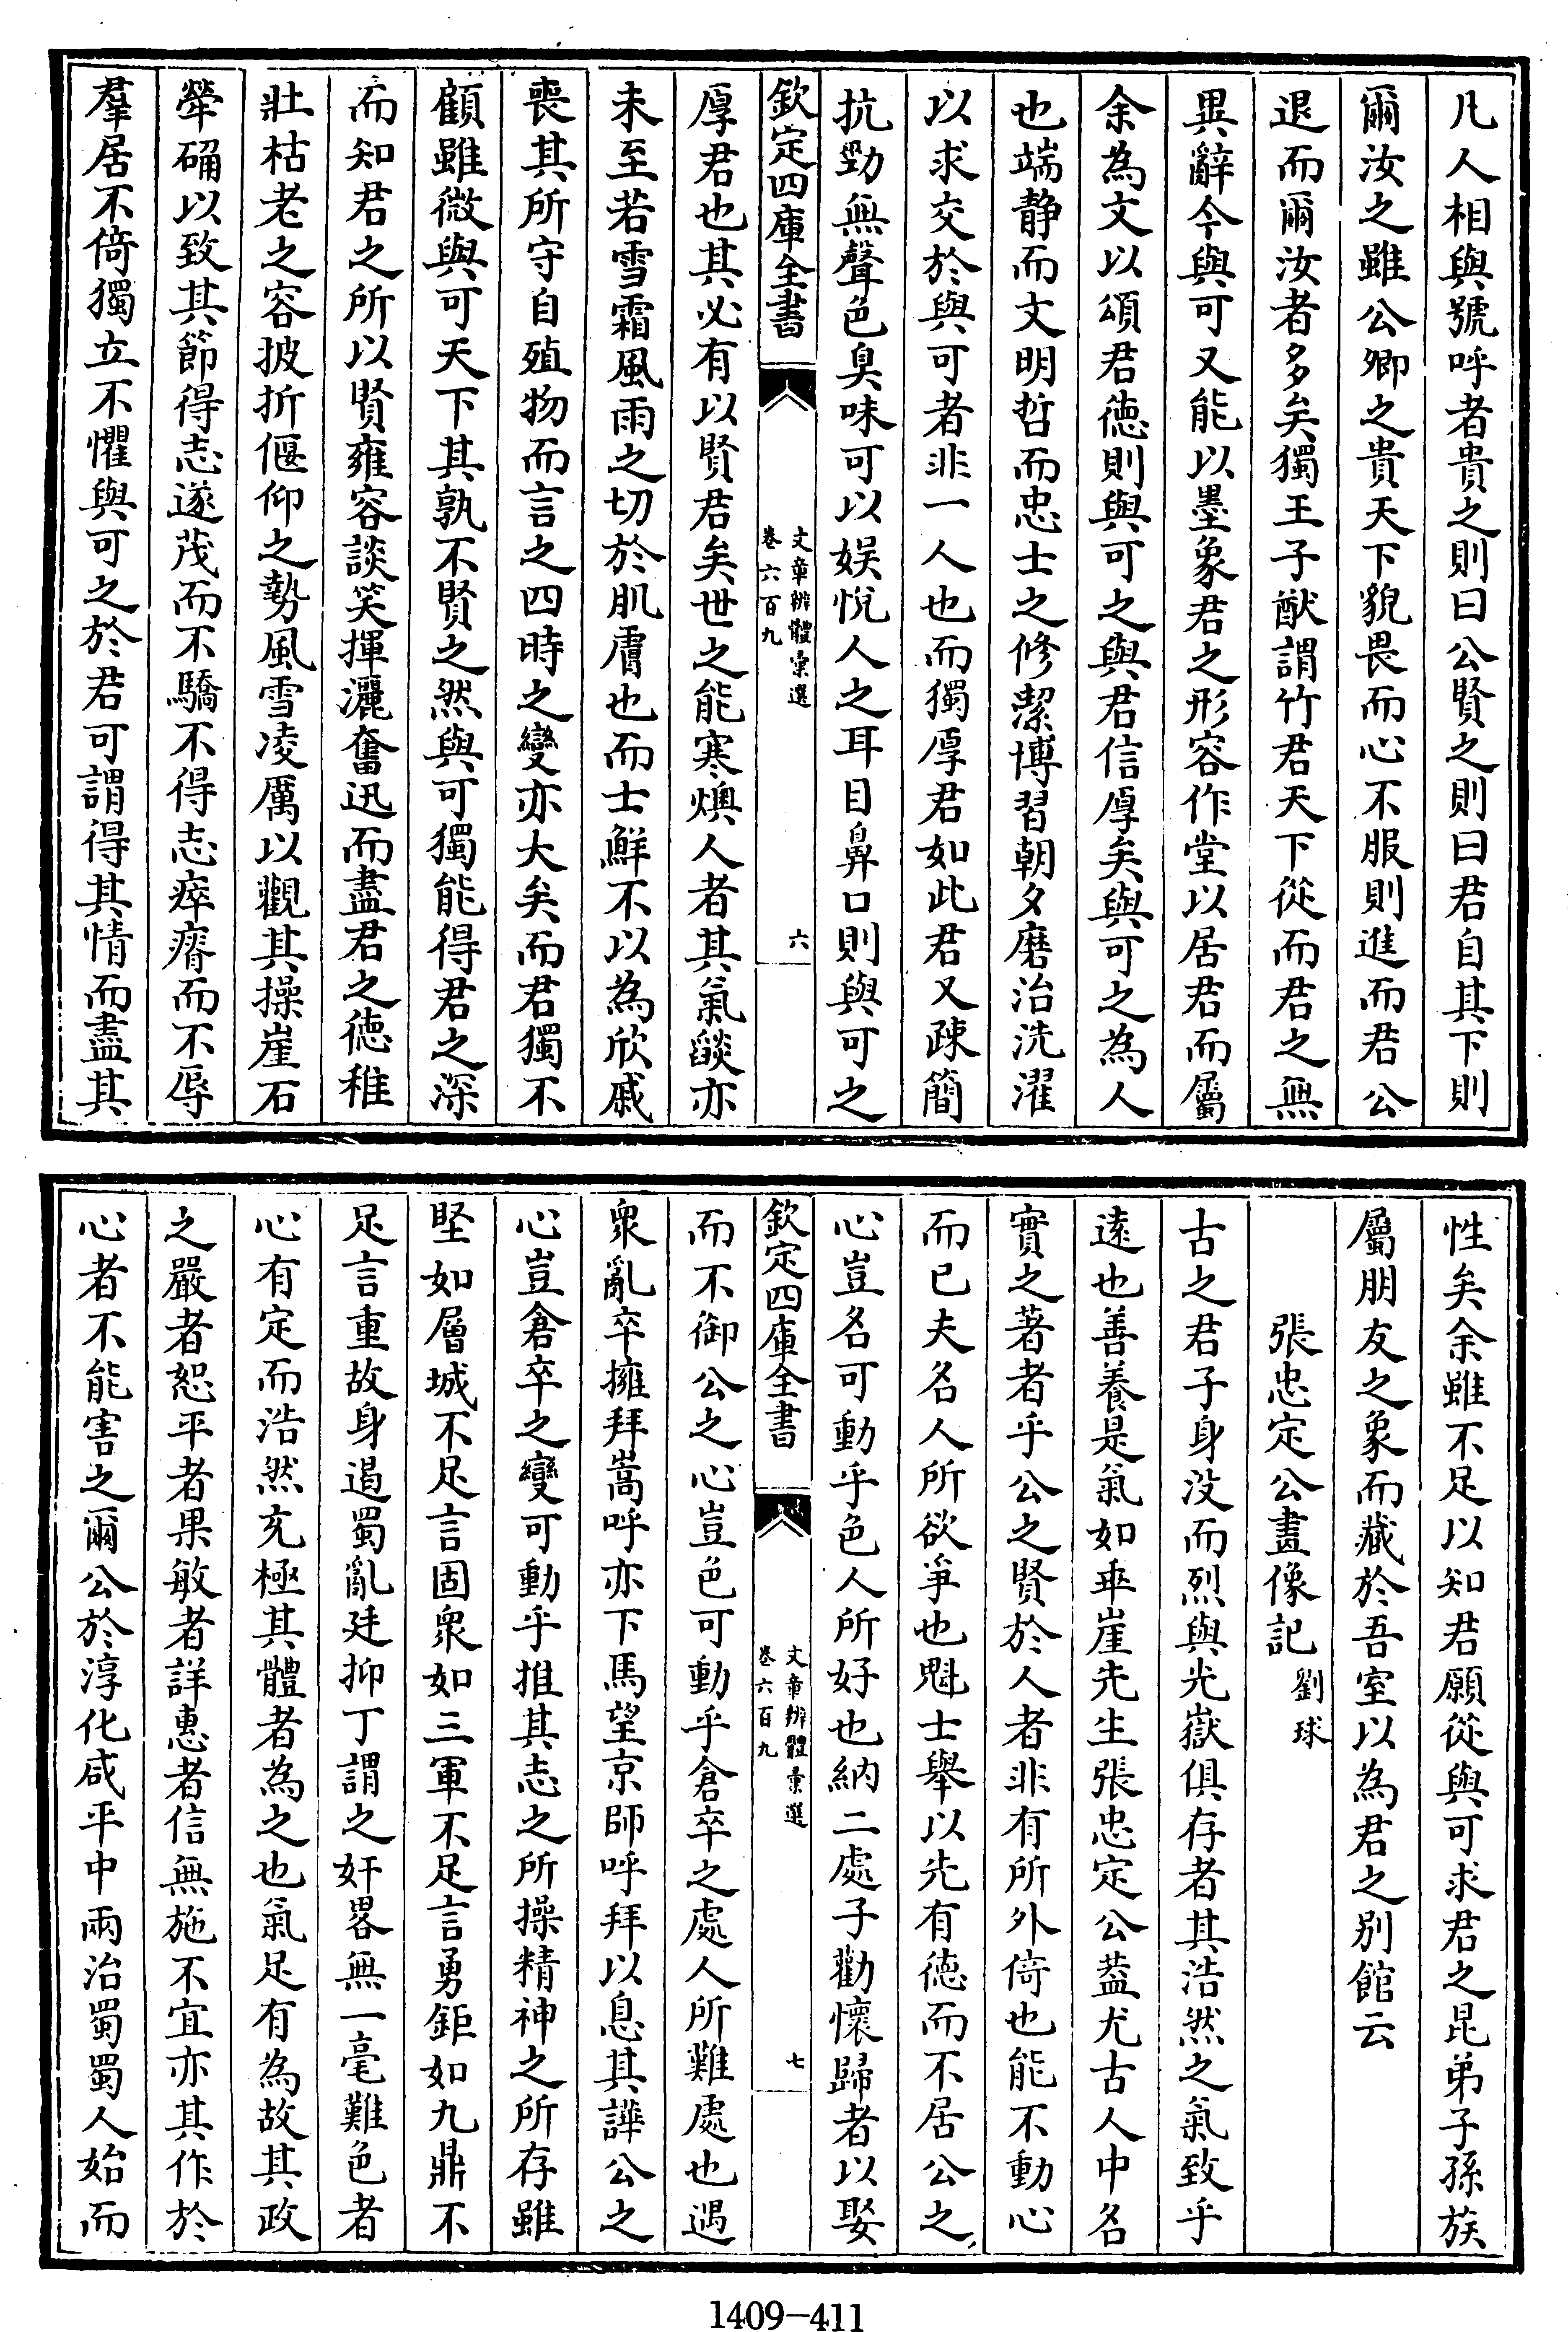 凡人相與號呼者貴之則曰公賢之則曰君自其下則
爾汝之雖公卿之貴天下貌畏而心不服則進而君公
退而爾汝者多矣獨王子猷謂竹君天下從而君之無
異辭今與可又能以墨象君之形容作堂以居君而屬
余為文以頌君徳則與可之與君信厚矣與可之為人
也端静而文明哲而忠士之修潔博習朝夕磨治洗濯
以求交於與可者非一人也而獨厚君如此君又疎簡
抗勁無聲色臭味可以娱悅人之耳目鼻口則與可之
欽定四庫全書
文章辨體彚選
卷六百九
六
厚君也其必有以賢君矣世之能寒燠人者其氣燄亦
未至若雪霜風雨之切於肌膚也而士鮮不以為欣戚
喪其所守自殖物而言之四時之變亦大矣而君獨不
顧雖微與可天下其孰不賢之然與可獨能得君之深
而知君之所以賢雍容談笑揮灑奮迅而盡君之徳稚
壯枯老之容披折偃仰之勢風雪凌厲以觀其操崖石
犖确以致其節得志遂茂而不驕不得志瘁瘠而不辱
羣居不倚獨立不懼與可之於君可謂得其情而盡其
性矣余雖不足以知君願從與可求君之昆弟子孫族
屬朋友之象而藏於吾室以為君之别館云
張忠定公畫像記 劉球
古之君子身没而烈與光嶽俱存者其浩然之氣致乎
逺也善養是氣如乖崖先生張忠定公葢尤古人中名
實之著者乎公之賢於人者非有所外倚也能不動心
而已夫名人所欲爭也魁士舉以先有徳而不居公之
心豈名可動乎色人所好也納二處子勸懷歸者以娶
欽定四庫全書
文章辨體彚選
卷六百九
七
而不御公之心豈色可動乎倉卒之處人所難處也遇
衆亂卒擁拜嵩呼亦下馬望京師呼拜以息其譁公之
心豈倉卒之變可動乎推其志之所操精神之所存雖
堅如層城不足言固衆如三軍不足言勇鉅如九鼎不
足言重故身遏蜀亂廷抑丁謂之奸畧無一毫難色者
心有定而浩然充極其體者為之也氣足有為故其政
之嚴者恕平者果敏者詳惠者信無施不宜亦其作於
心者不能害之爾公於淳化咸平中兩治蜀蜀人始而
1409-411